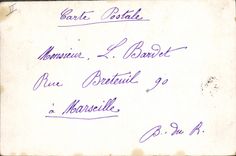 Carte Postale
Monsieur. L. Bardet
Rue Breteuil 90
à Marseille
B. du R.